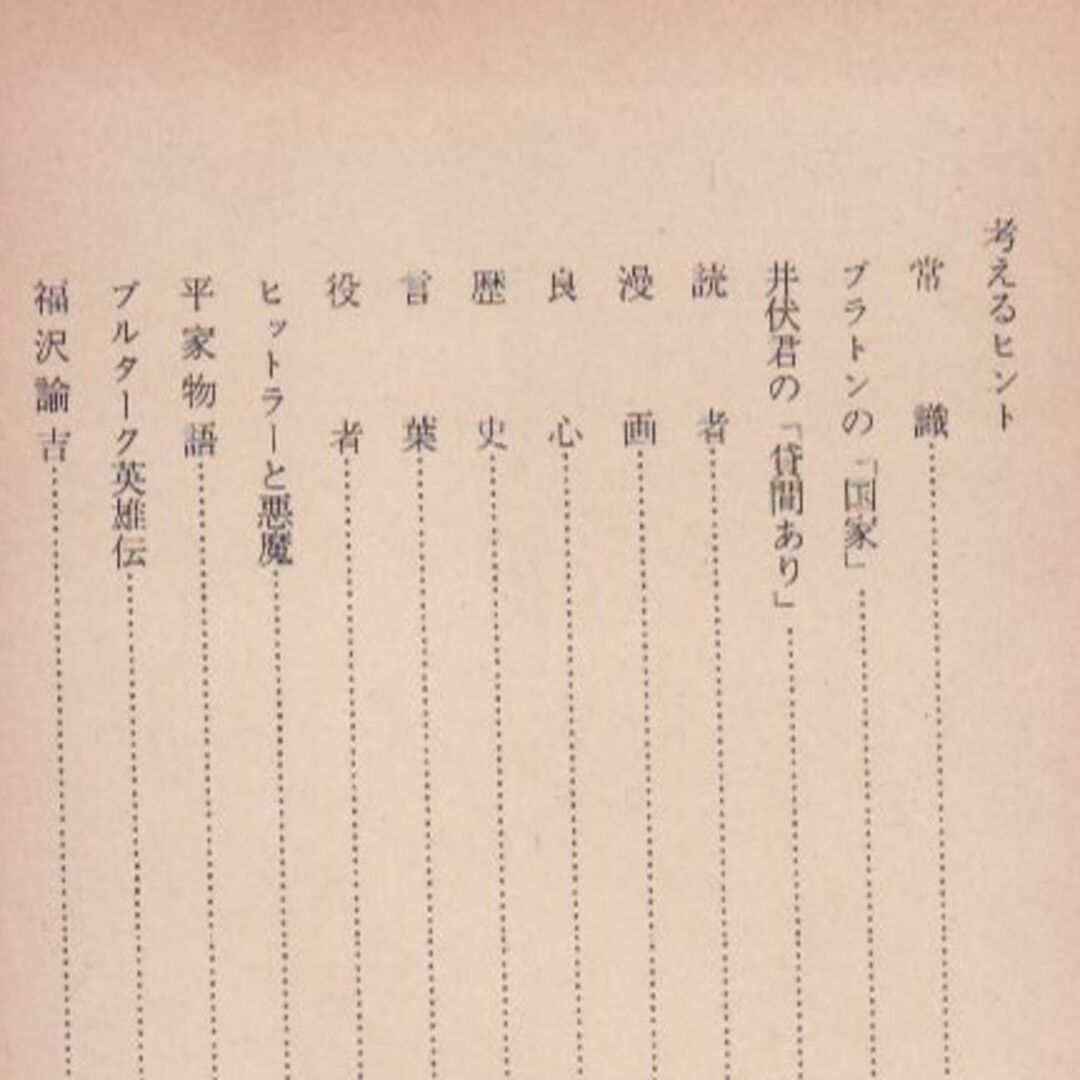 考えるヒント
常識
プラトンの「国家」
井伏君の「貸間あり」
読者
漫画
良心
歴史
言葉
役者
ヒットラーと悪魔
平家物語
プルターク英雄伝
福沢諭吉